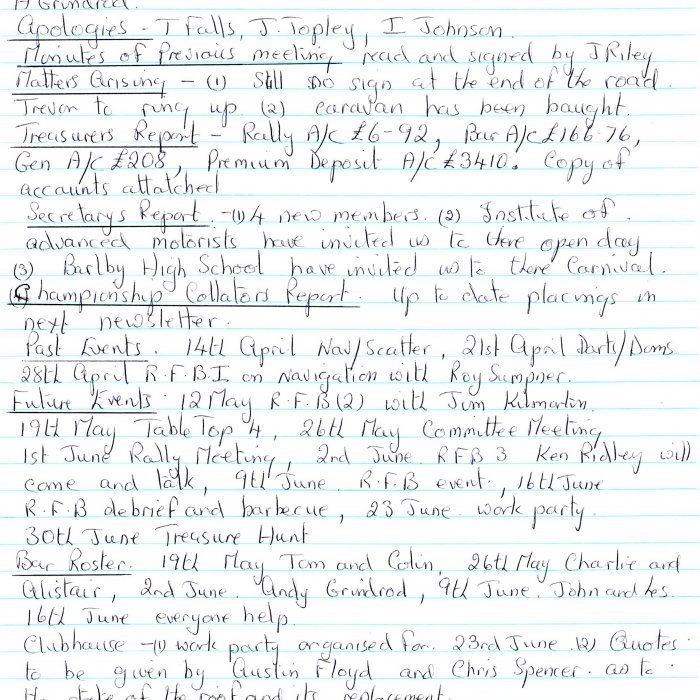 A Grindrod.
Apologies - T Falls, J. Topley, I Johnson.
Minutes of Previous meeting read and signed by J Riley
Matters Arising - (1) Still no sign at the end of the road.
Trevor to ring up (2) caravan has been baught.
Treasurers Report - Rally A/C £6-92, Bar A/C £166.76,
Gen A/C £208, Premium Deposit A/C £3410. Copy of
accounts attatched
Secretarys Report. -(1) 4 new members. (2) Institute of.
advanced motorists have invited us to there open day
(3) Barlby High School have invited us to there Carnival.
Championship Collators Report. Up to date placings in
next newsletter.
Past Events. 14th April Nav/Scatter, 21st April Darts/Doms.
28th April R.F.B.I. on Navigation with Roy Sumpner.
Future Events. 12 May R.F.B(2) with Jim Kilmartin.
19th May Table Top 4, 26th May Committee Meeting
1st June Rally Meeting, 2nd June RFB 3 Ken Ridley will
come and talk, 9th June. R.F.B event, 16th June
R.F.B debrief and barbecue, 23 June. work party.
30th June Treasure Hunt
Bar Roster. 19th May Tom and Colin, 26th May Charlie and
Alistair, 2nd June. Andy Grindrod, 9th June. John and Les.
16th June everyone help.
Clubhouse -(1) work party organised for. 23rd June (2) Quotes
to be given by Austin Floyd and Chris Spencer. as to
the state of the roof and its replacement.